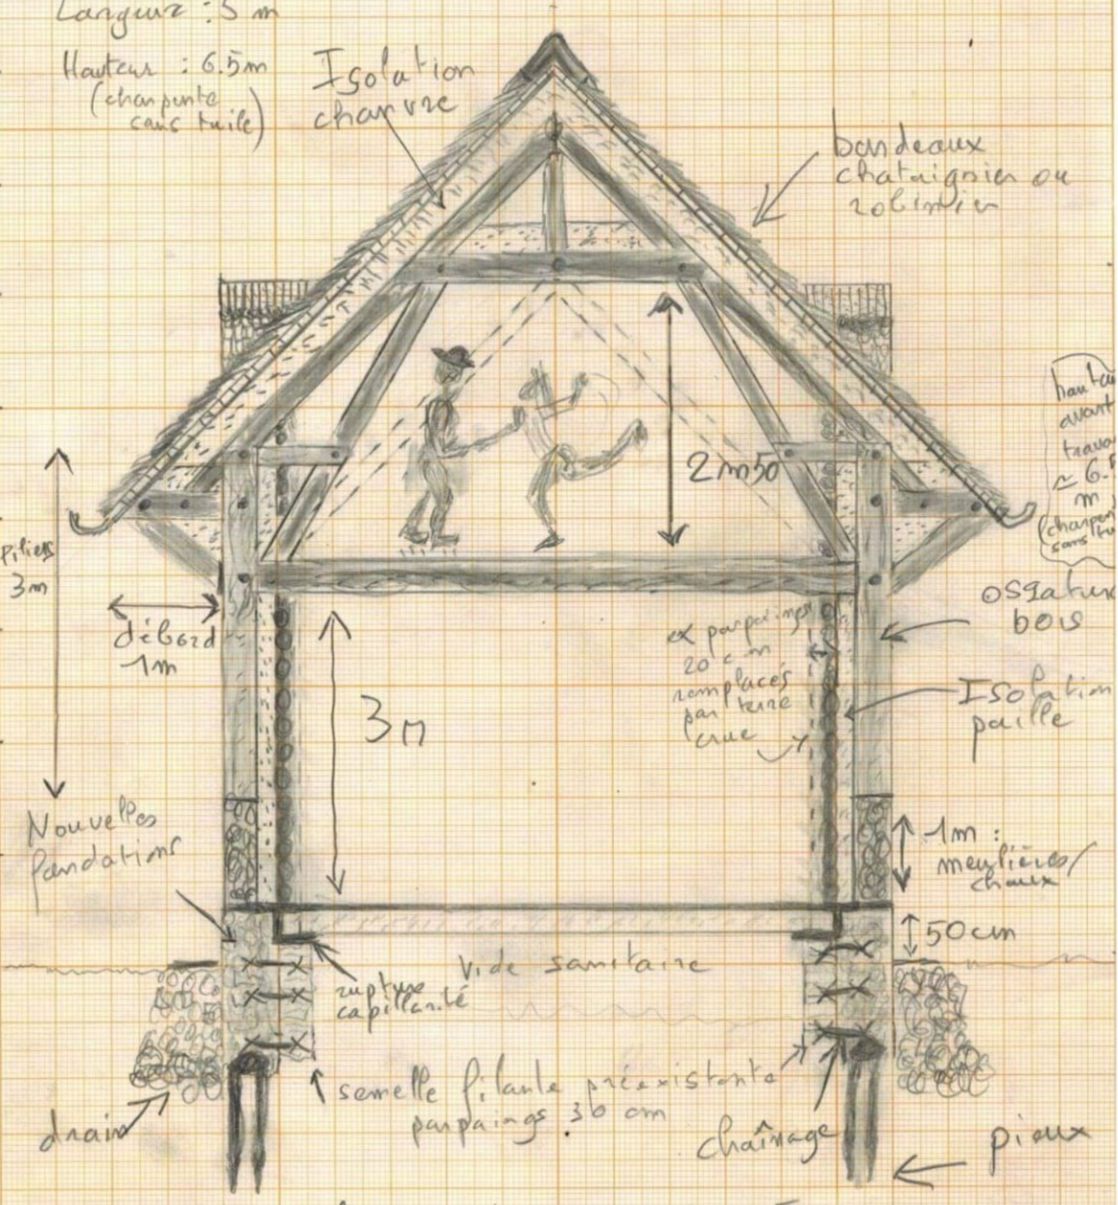 Largeur : 5 m
Hauteur : 6.5m
(charpente
sans tuile)
Isolation
chanvre
bardeaux
chataignier ou
robinier
haute
avant
trava
≈ 6.
m
(charpen
sans tu
2m50
Piliers
3m
débord
1m
ossature
bois
ex parpaings
20 cm
remplacés
par terre
crue
3m
Isolation
paille
Nouvelles
fondations
1m :
meulières/
chaux
50cm
Vide sanitaire
rupture
capillarité
semelle filante préexistante
parpaings 30 cm
drain
chaînage
pieux